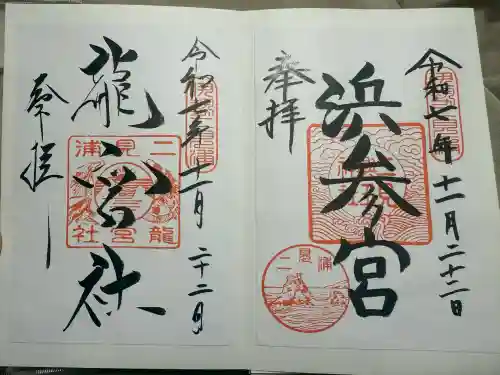 令和七年十一月二十二日
浜参宮
奉拝
二見
浦
令和七年十一月二十二月
龍宮社
奉拝
二見浦
龍宮社